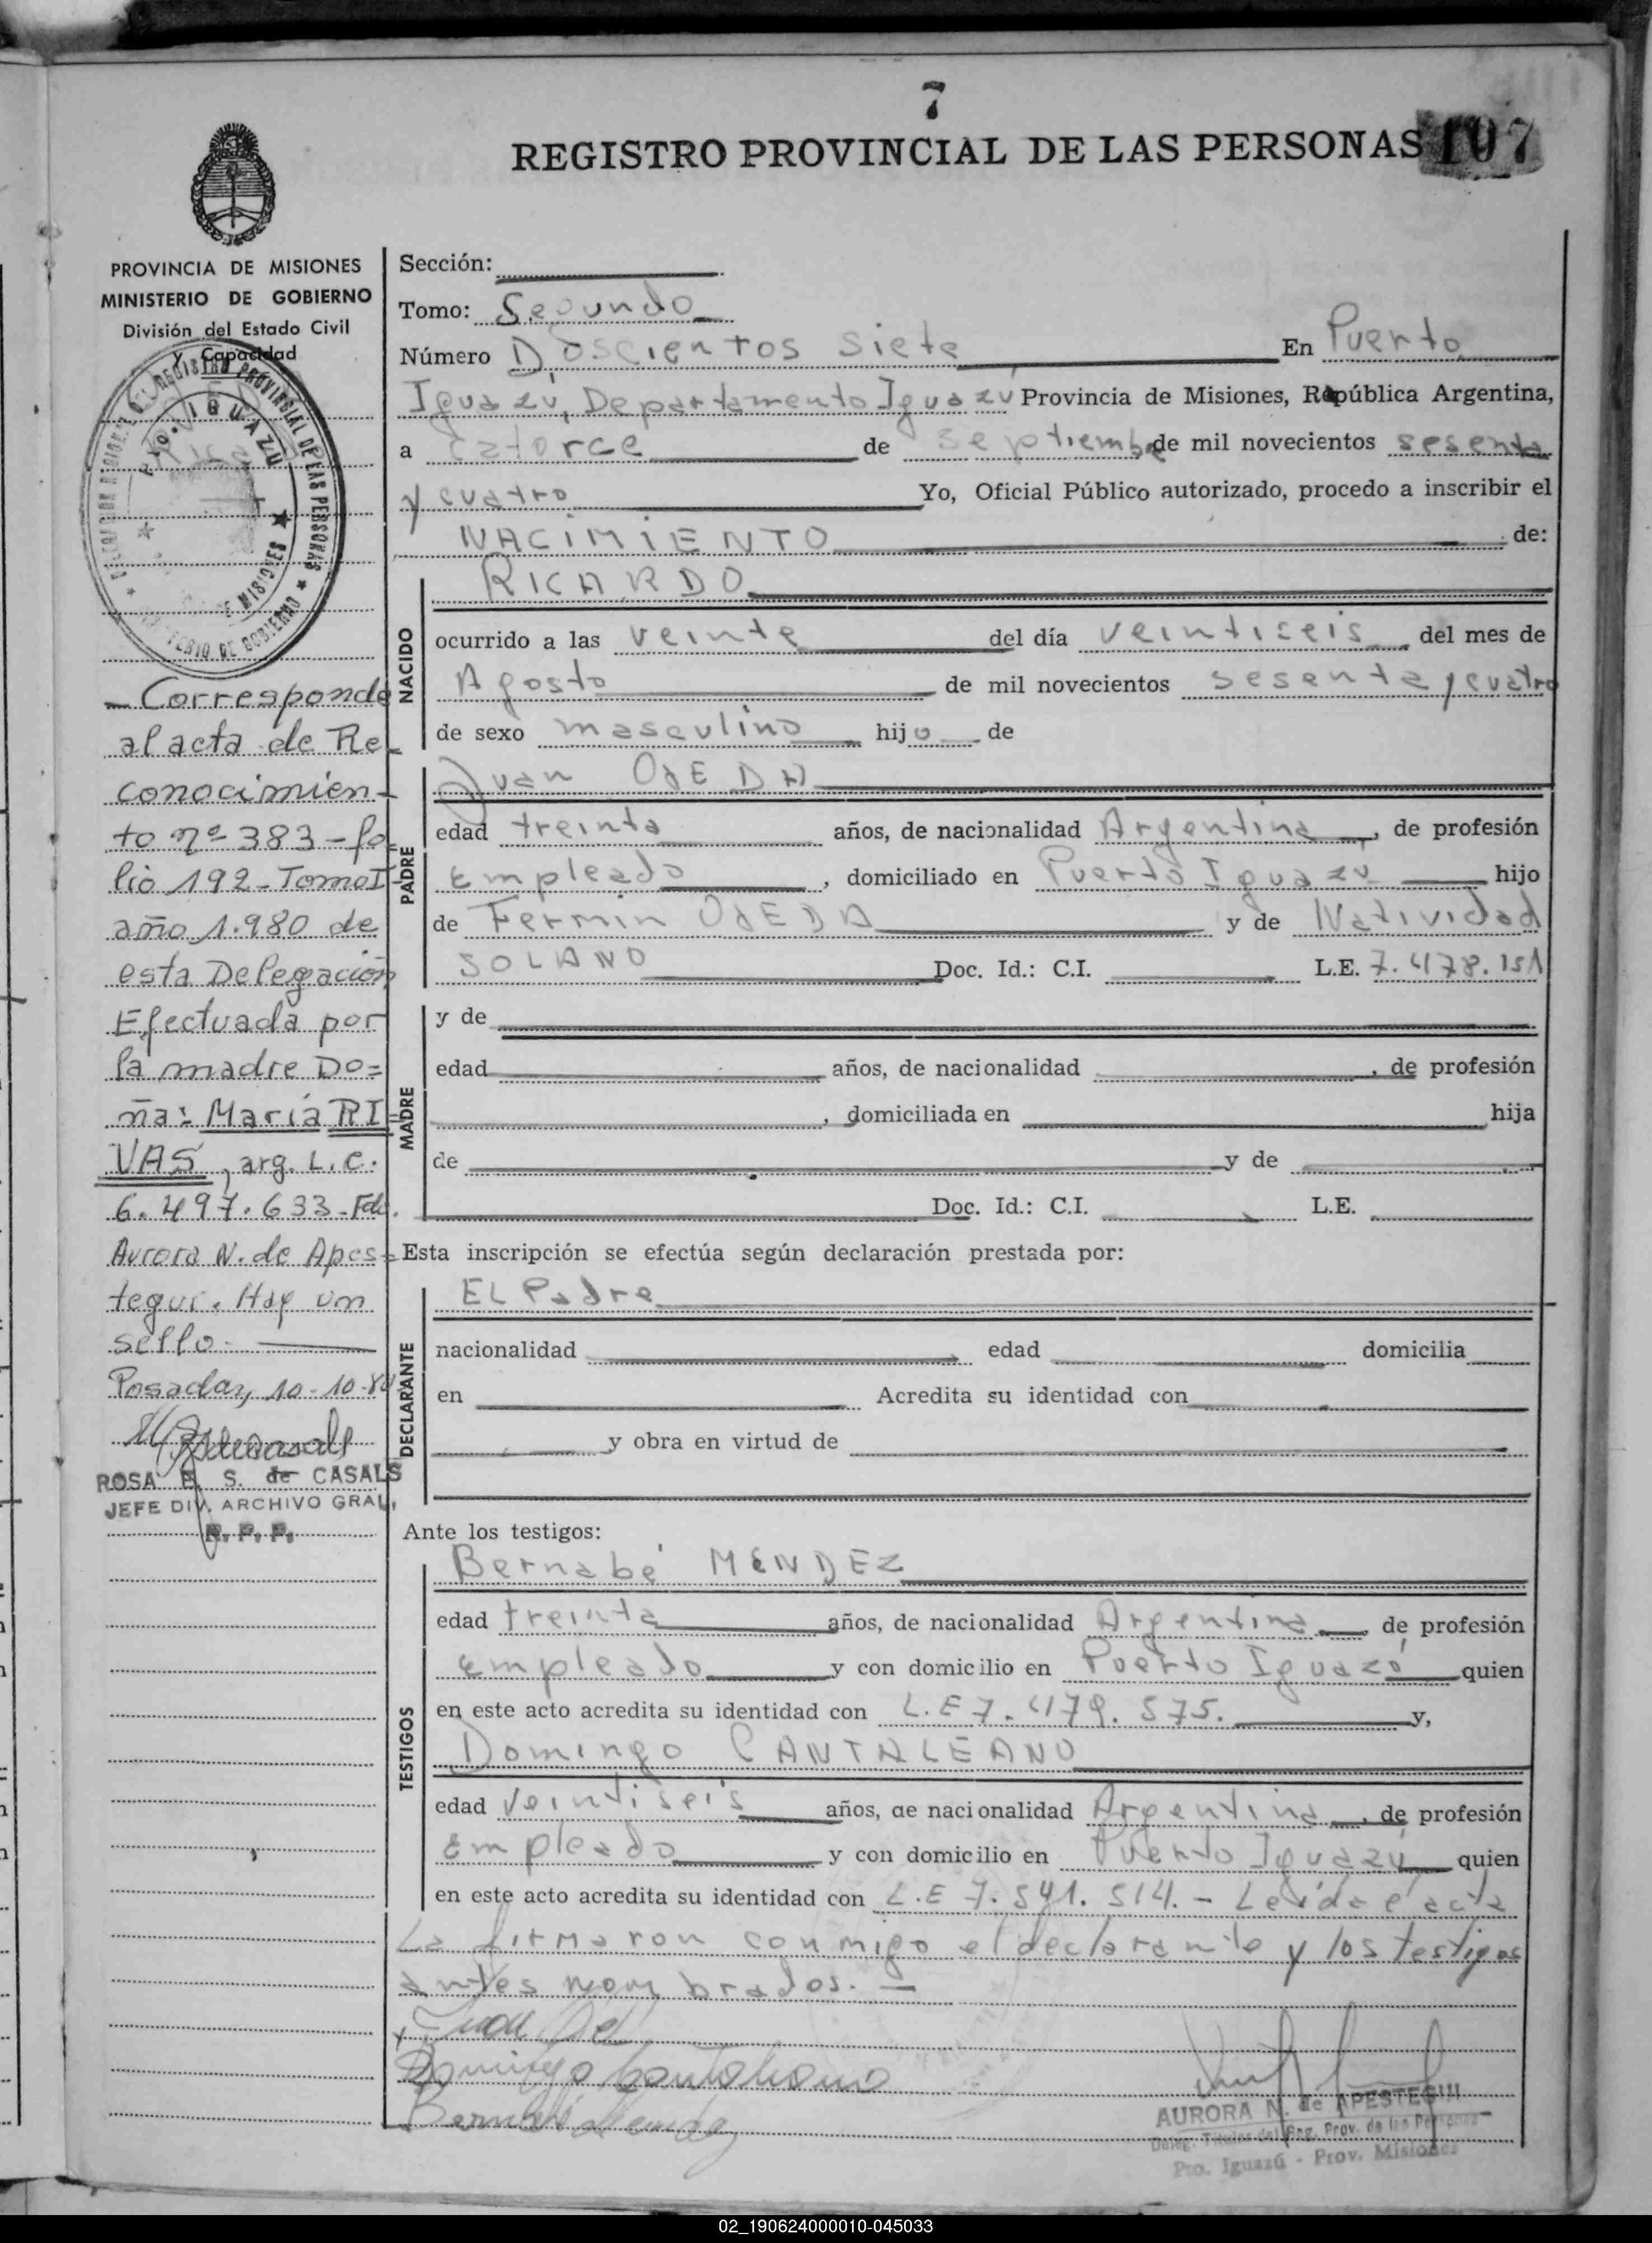 7
REGISTRO PROVINCIAL DE LAS PERSONAS 107
PROVINCIA DE MISIONES
MINISTERIO DE GOBIERNO
División del Estado Civil
y Capacidad
REGISTRO PROVINCIAL DE LAS PERSONAS
PTO. IGUAZU
MISIONES
MINISTERIO DE GOBIERNO
— Corresponde
al acta de Re-
conocimien-
to nº 383 - fo=
lio 192 - Tomo I
año 1.980 de
esta Delegación
Efectuada por
la madre Do=
ña: María RI=
VAS, arg. L.C.
6.497.633 - Fdo.
Aurora N. de Apes=
tegui. Hay un
sello.
Posadas, 10-10-80
ROSA E. S. de CASALS
JEFE DIV. ARCHIVO GRAL.
R. P. P.
Sección:
Tomo: Segundo
Número Doscientos siete En Puerto
Iguazú, Departamento Iguazú Provincia de Misiones, República Argentina,
a catorce de septiembre de mil novecientos sesenta
y cuatro Yo, Oficial Público autorizado, procedo a inscribir el
NACIMIENTO de:
NACIDO
RICARDO
ocurrido a las veinte del día veintiseis del mes de
Agosto de mil novecientos sesenta y cuatro
de sexo masculino hijo de
PADRE
Juan OJEDA
edad treinta años, de nacionalidad Argentina, de profesión
Empleado, domiciliado en Puerto Iguazú hijo
de Fermin OJEDA y de Natividad
SOLANO Doc. Id.: C.I. L.E. 7.478.151
MADRE
y de
edad años, de nacionalidad , de profesión
, domiciliada en hija
de y de
Doc. Id.: C.I. L.E.
Esta inscripción se efectúa según declaración prestada por:
DECLARANTE
EL Padre
nacionalidad edad domicilia
en Acredita su identidad con
y obra en virtud de
Ante los testigos:
TESTIGOS
Bernabé MENDEZ
edad treinta años, de nacionalidad Argentina, de profesión
Empleado y con domicilio en Puerto Iguazú quien
en este acto acredita su identidad con L.E 7.479.575. y,
Domingo CANTALEANO
edad veintiseis años, de nacionalidad Argentina, de profesión
Empleado y con domicilio en Puerto Iguazú quien
en este acto acredita su identidad con L.E 7.541.514. - Leída el acta
La firmaron conmigo el declarante y los testigos
antes nombrados. —
Juan
Domingo Cantaliano
Bernabé Mendez
AURORA N. de APESTEGUI
Deleg. Titular del Reg. Prov. de las Personas
Pto. Iguazú - Prov. Misiones
02_190624000010-045033